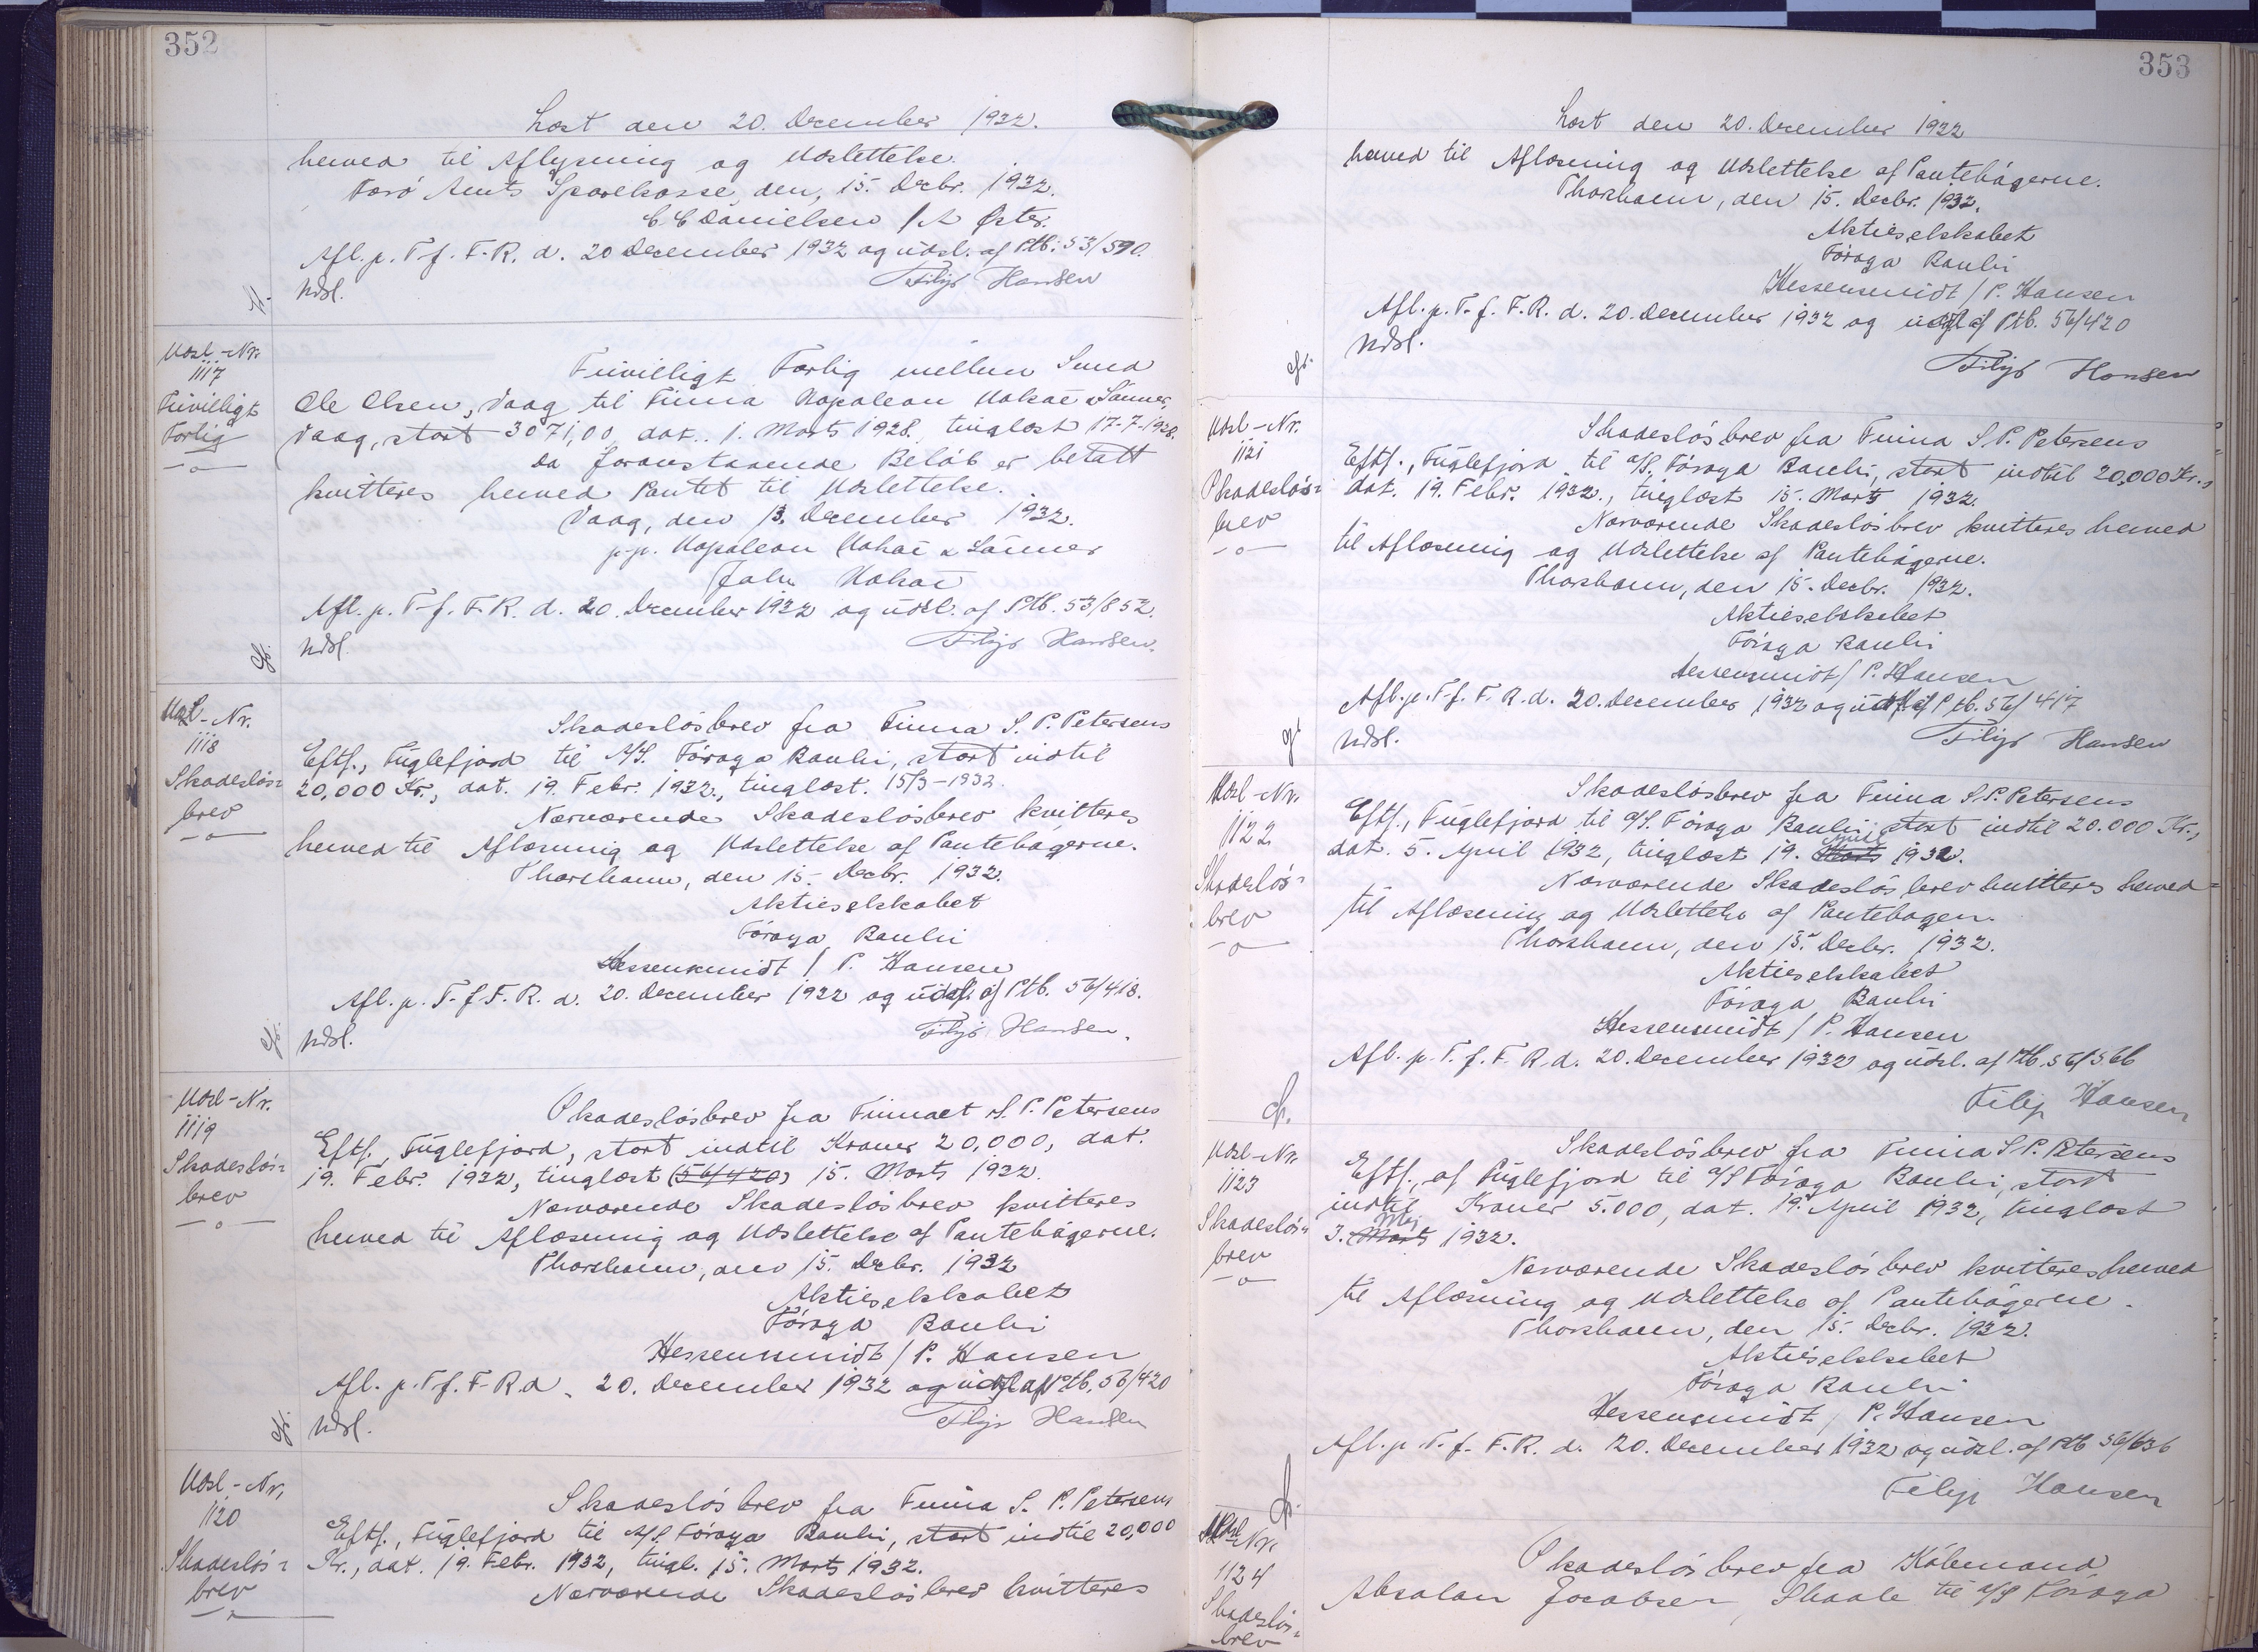 352
Læst den 20. December 1932.
herved til Aflysning og Udslettelse.
Færö Amts Sparekasse, den, 15. Decbr. 1932.
C C Danielsen / A Öster.
Afl. p. T. f. F. R. d. 20 December 1932 og udsl. af Ptb. 53/590.
Udsl.
Filip Hansen
Udsl-Nr.
1117
Frivilligt
Forlig
Frivilligt Forlig mellem Smed
Ole Olsen, Vaag til Firma Napoleon Nolsøe & Sönner,
Vaag, stort 3071,00, dat. 1. Marts 1928, tinglæst 17-7-1928.
Da foranstaaende Belöb er betalt
kvitteres herved Pantet til Udslettelse.
Vaag, den 13. December 1932.
p.p. Napoleon Nolsøe & Sönner
John Nolsøe
Afl. p. T. f. F. R. d. 20. December 1932 og udsl. af Ptb. 53/852.
Udsl.
Filip Hansen.
Udsl-Nr.
1118
Skadeslös=
brev
Skadeslösbrev fra Firma S. P. Petersens
Eftf., Fuglefjord til A/S. Föroya Banki, stort indtil
20,000 Kr., dat. 19. Febr. 1932, tinglæst. 15/3-1932.
Nærværende Skadeslösbrev kvitteres
herved til Aflæsning og Udslettelse af Pantebögerne.
Thorshavn, den 15. Decbr. 1932.
Aktieselskabet
Föroya Banki
Hessensmidt / P. Hansen
Afl. p. T. f. F. R. d. 20. December 1932 og udsl. af Ptb. 56/418.
Udsl.
Filip Hansen.
Udsl-Nr.
1119
Skadeslös=
brev
Skadeslösbrev fra Firmaet S. P. Petersens
Eftf., Fuglefjord, stort indtil Kroner 20,000, dat.
19. Febr. 1932, tinglæst (56/420) 15. Marts 1932.
Nærværende Skadeslösbrev kvitteres
herved til Aflæsning og Udslettelse af Pantebögerne.
Thorshavn, den 15. Decbr. 1932
Aktieselskabet
Föroya Banki
Hessensmidt / P. Hansen
Afl. p. T. f. F. R. d. 20. December 1932 og udsl af Ptb. 56/420
Udsl.
Filip Hansen
Udsl-Nr.
1120
Skadeslös=
brev
Skadeslösbrev fra Firma S. P. Petersens
Eftf., Fuglefjord til A/S Föroya Banki, stort indtil 20,000
Kr., dat. 19. Febr. 1932, tingl. 15. Marts 1932.
Nærværende Skadeslösbrev kvitteres
353
Læst den 20. December 1932
herved til Aflæsning og Udslettelse af Pantebögerne.
Thorshavn, den 15. Decbr. 1932.
Aktieselskabet
Föroya Banki
Hessensmidt / P. Hansen
Afl. p. T. f. F. R. d. 20. December 1932 og udsl af Ptb. 56/420
Udsl.
Filip Hansen
Udsl-Nr.
1121
Skadeslös=
brev
Skadeslösbrev fra Firma S. P. Petersens
Eftf., Fuglefjord til A/S. Föroya Banki, stort indtil 20,000 Kr.,
dat. 19. Febr. 1932., tinglæst 15. Marts 1932.
Nærværende Skadeslösbrev kvitteres herved
til Aflæsning og Udslettelse af Pantebögerne.
Thorshavn, den 15. Decbr. 1932.
Aktieselskabet
Föroya Banki
Hessensmidt / P. Hansen
Afl. p. T. f. F. R. d. 20. December 1932 og udsl. af Ptb. 56/417
Udsl.
Filip Hansen
Udsl-Nr.
1122
Skadeslös=
brev
Skadeslösbrev fra Firma S. P. Petersens
Eftf., Fuglefjord til A/S. Föroya Banki, stort indtil 20.000 Kr.,
dat. 5. April 1932, tinglæst 19. Marts April 1932.
Nærværende Skadeslösbrev kvitteres herved=
til Aflæsning og Udslettelse af Pantebogen.
Thorshavn, den 15. Decbr. 1932.
Aktieselskabet
Föroya Banki
Hessensmidt / P. Hansen
Afl. p. T. f. F. R. d. 20. December 1932 og udsl. af Ptb. 56/566
Filip Hansen
Udsl-Nr.
1123
Skadeslös=
brev
Skadeslösbrev fra Firma S. P. Petersens
Eftf., af Fuglefjord til A/S Föroya Banki, stort
indtil Kroner 5.000, dat. 19. April 1932, tinglæst
3. Marts Maj 1932.
Nærværende Skadeslösbrev kvitteres herved
til Aflæsning og Udslettelse af Pantebögerne.
Thorshavn, den 15. Decbr. 1932.
Aktieselskabet
Föroya Banki
Hessensmidt / P. Hansen
Afl. p. T. f. F. R. d. 20. December 1932 og udsl. af Ptb 56/636
Filip Hansen
Udsl-Nr.
1124
Skadeslös=
brev
Skadeslösbrev fra Köbmand
Absalon Jacobsen, Skaale til A/S Föroya